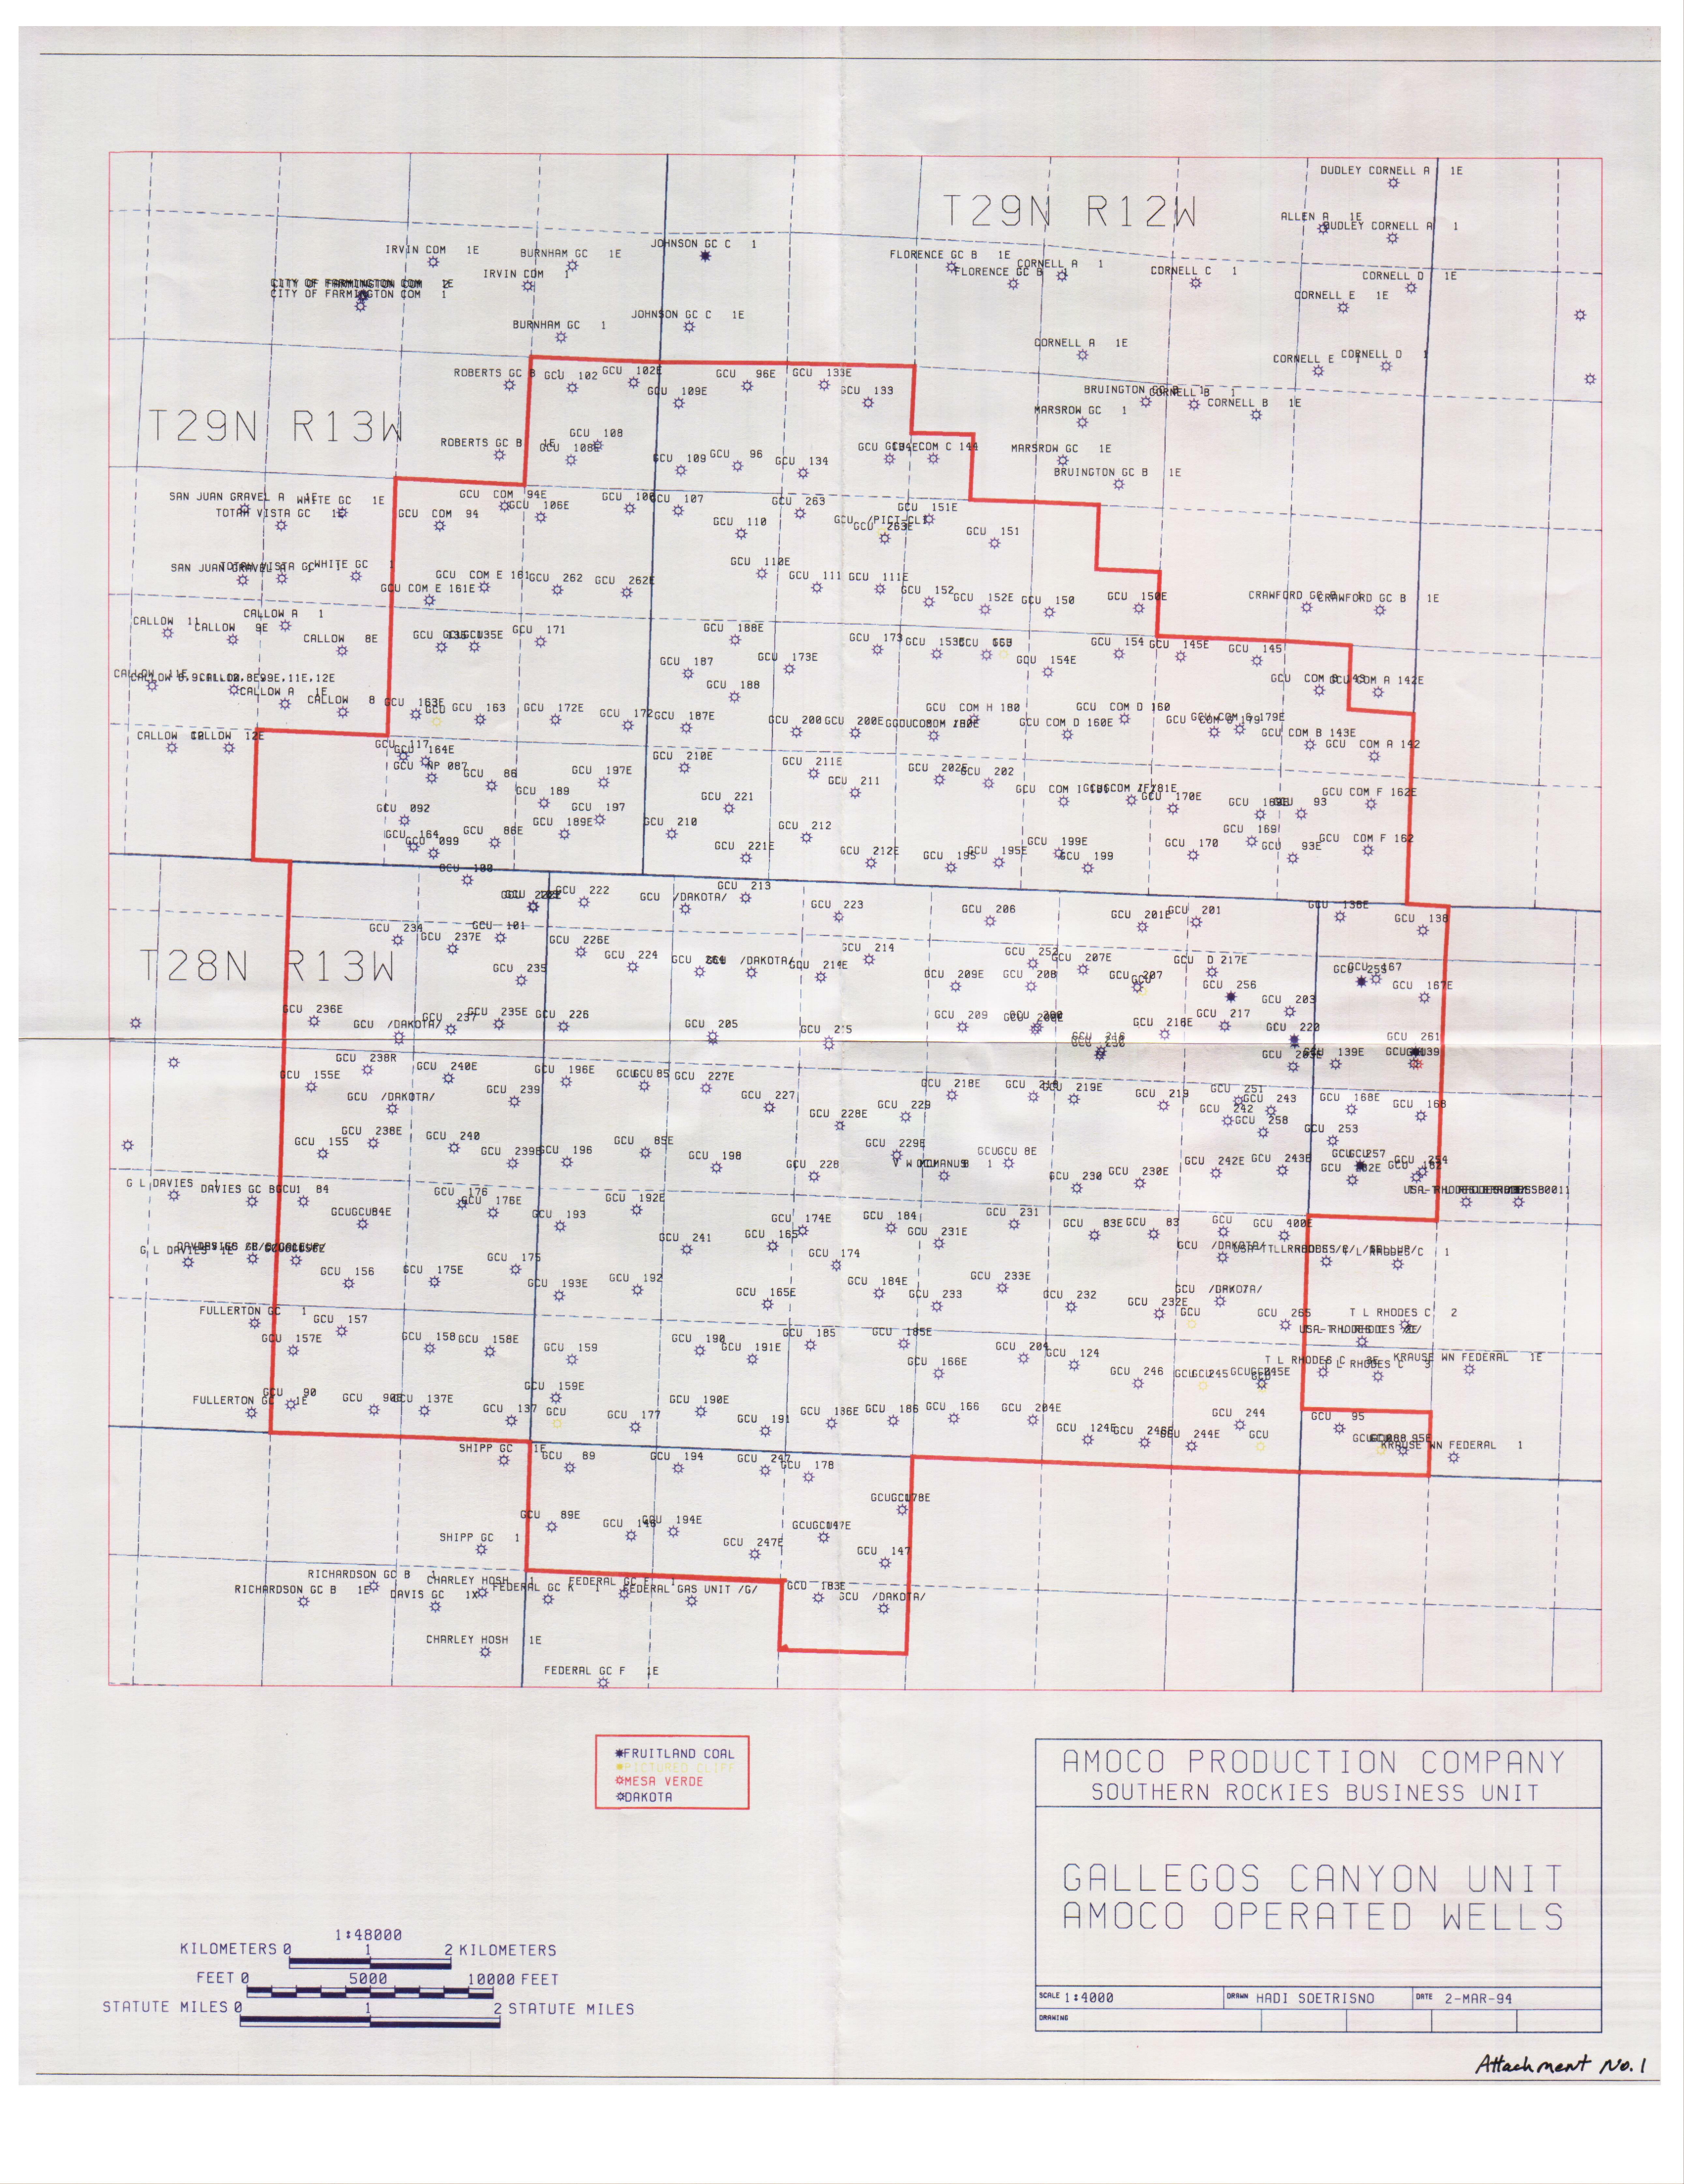 DUDLEY CORNELL A 1E
T29N R12W
ALLEN A 1E
DUDLEY CORNELL A 1
JOHNSON GC C 1
IRVIN COM 1E
BURNHAM GC 1E
FLORENCE GC B 1E
CORNELL A 1
FLORENCE GC B 1
CORNELL C 1
CORNELL D 1E
IRVIN COM 1
CITY OF FARMINGTON COM 1
CORNELL E 1E
BURNHAM GC 1
JOHNSON GC C 1E
CORNELL A 1E
CORNELL E
CORNELL D 1
ROBERTS GC B 1
GCU 102
GCU 102E
GCU 96E
GCU 133E
GCU 109E
GCU 133
BRUINGTON GC B 1
CORNELL B 1
CORNELL B 1E
MARSROW GC 1
T29N R13W
ROBERTS GC B 1E
GCU 108
GCU 108E
GCU 109
GCU 96
GCU 134
GCU COM C 144
MARSROW GC 1E
BRUINGTON GC B 1E
SAN JUAN GRAVEL A 1E
WHITE GC 1E
TOTAH VISTA GC
GCU COM 94E
GCU COM 94
GCU 106E
GCU 107
GCU 263
GCU 110
GCU 263E
GCU 151E
GCU 151
WHITE GC 1
GCU COM E 161
GCU COM E 161E
GCU 262
GCU 262E
GCU 110E
GCU 111
GCU 111E
GCU 152
GCU 152E
GCU 150
GCU 150E
CRAWFORD GC B 1E
CALLOW 11
CALLOW 9E
CALLOW A 1
CALLOW 8E
GCU 171
GCU 188E
GCU 173
GCU 153E
GCU 154
GCU 145E
GCU 145
GCU 187
GCU 173E
GCU 154E
GCU 188
CALLOW A 1E
CALLOW 8
GCU 163E
GCU 163
GCU 172E
GCU 172
GCU 187E
GCU 200
GCU 200E
GCU COM H 180
GCU COM D 160
GCU COM D 160E
GCU COM B 143E
GCU COM A 142E
GCU COM A 142
CALLOW 12E
GCU 117
GCU 164E
GCU NP 087
GCU 86
GCU 197E
GCU 210E
GCU 211E
GCU 211
GCU 202E
GCU 202
GCU 170E
GCU 93
GCU COM F 162E
GCU 092
GCU 189
GCU 197
GCU 221
GCU 164
GCU 099
GCU 86E
GCU 189E
GCU 210
GCU 212
GCU 221E
GCU 212E
GCU 195
GCU 195E
GCU 199E
GCU 199
GCU 170
GCU 169
GCU 93E
GCU COM F 162
GCU 100
GCU 222
GCU /DAKOTA/
GCU 213
GCU 223
GCU 206
GCU 201E
GCU 201
GCU 138E
GCU 138
T28N R13W
GCU 234
GCU 237E
GCU 101
GCU 235
GCU 226E
GCU 224
GCU 264
GCU /DAKOTA/
GCU 214
GCU 214E
GCU 209E
GCU 252
GCU 208
GCU 207E
GCU 207
GCU D 217E
GCU 256
GCU 167
GCU 167E
GCU 236E
GCU /DAKOTA/
GCU 237
GCU 235E
GCU 226
GCU 205
GCU 215
GCU 209
GCU 216E
GCU 217
GCU 203
GCU 220
GCU 261
GCU 238R
GCU 155E
GCU 240E
GCU /DAKOTA/
GCU 239
GCU 196E
GCU 85
GCU 227E
GCU 227
GCU 228E
GCU 229
GCU 218E
GCU 219E
GCU 219
GCU 139E
GCU 251
GCU 243
GCU 242
GCU 258
GCU 168E
GCU 168
GCU 253
GCU 155
GCU 238E
GCU 240
GCU 239E
GCU 196
GCU 85E
GCU 198
GCU 228
GCU 229E
GCU 8E
GCU 230
GCU 230E
GCU 242E
GCU 243E
GCU 257
GCU 254
G L DAVIES 1
DAVIES GC B
GCU 84
GCU 84E
GCU 176
GCU 176E
GCU 193
GCU 192E
GCU 241
GCU 165
GCU 174E
GCU 174
GCU 184
GCU 231E
GCU 231
GCU 83E
GCU 83
GCU
GCU 400E
GCU /DAKOTA/
G L DAVIES 1E
GCU 156
GCU 175E
GCU 175
GCU 193E
GCU 192
GCU 165E
GCU 184E
GCU 233
GCU 233E
GCU 232
GCU 232E
GCU /DAKOTA/
GCU
GCU 265
T L RHODES C 2
FULLERTON GC 1
GCU 157
GCU 157E
GCU 158
GCU 158E
GCU 159
GCU 190
GCU 191E
GCU 185
GCU 185E
GCU 166E
GCU 204
GCU 124
GCU 246
GCU 245
T L RHODES C 3
KRAUSE WN FEDERAL 1E
FULLERTON GC 1E
GCU 90
GCU 90E
GCU 137E
GCU 137
GCU 159E
GCU
GCU 177
GCU 190E
GCU 191
GCU 186E
GCU 186
GCU 166
GCU 204E
GCU 124E
GCU 246E
GCU 244E
GCU 244
GCU
GCU 95
KRAUSE WN FEDERAL 1
SHIPP GC 1E
GCU 89
GCU 194
GCU 247
GCU 178
GCU 89E
GCU 146
GCU 194E
GCU 247E
GCU 147
SHIPP GC 1
RICHARDSON GC B 1
RICHARDSON GC B 1E
CHARLEY HOSH 1
DAVIS GC 1X
FEDERAL GC K 1
FEDERAL GC F 1
FEDERAL GAS UNIT /G/
GCU 183E
GCU /DAKOTA/
CHARLEY HOSH 1E
FEDERAL GC F 1E
FRUITLAND COAL
PICTURED CLIFF
MESA VERDE
DAKOTA
AMOCO PRODUCTION COMPANY
SOUTHERN ROCKIES BUSINESS UNIT
GALLEGOS CANYON UNIT
AMOCO OPERATED WELLS
SCALE 1:4000 DRAWN HADI SOETRISNO DATE 2-MAR-94
DRAWING
1:48000
KILOMETERS 0 1 2 KILOMETERS
FEET 0 5000 10000 FEET
STATUTE MILES 0 1 2 STATUTE MILES
Attachment No. 1